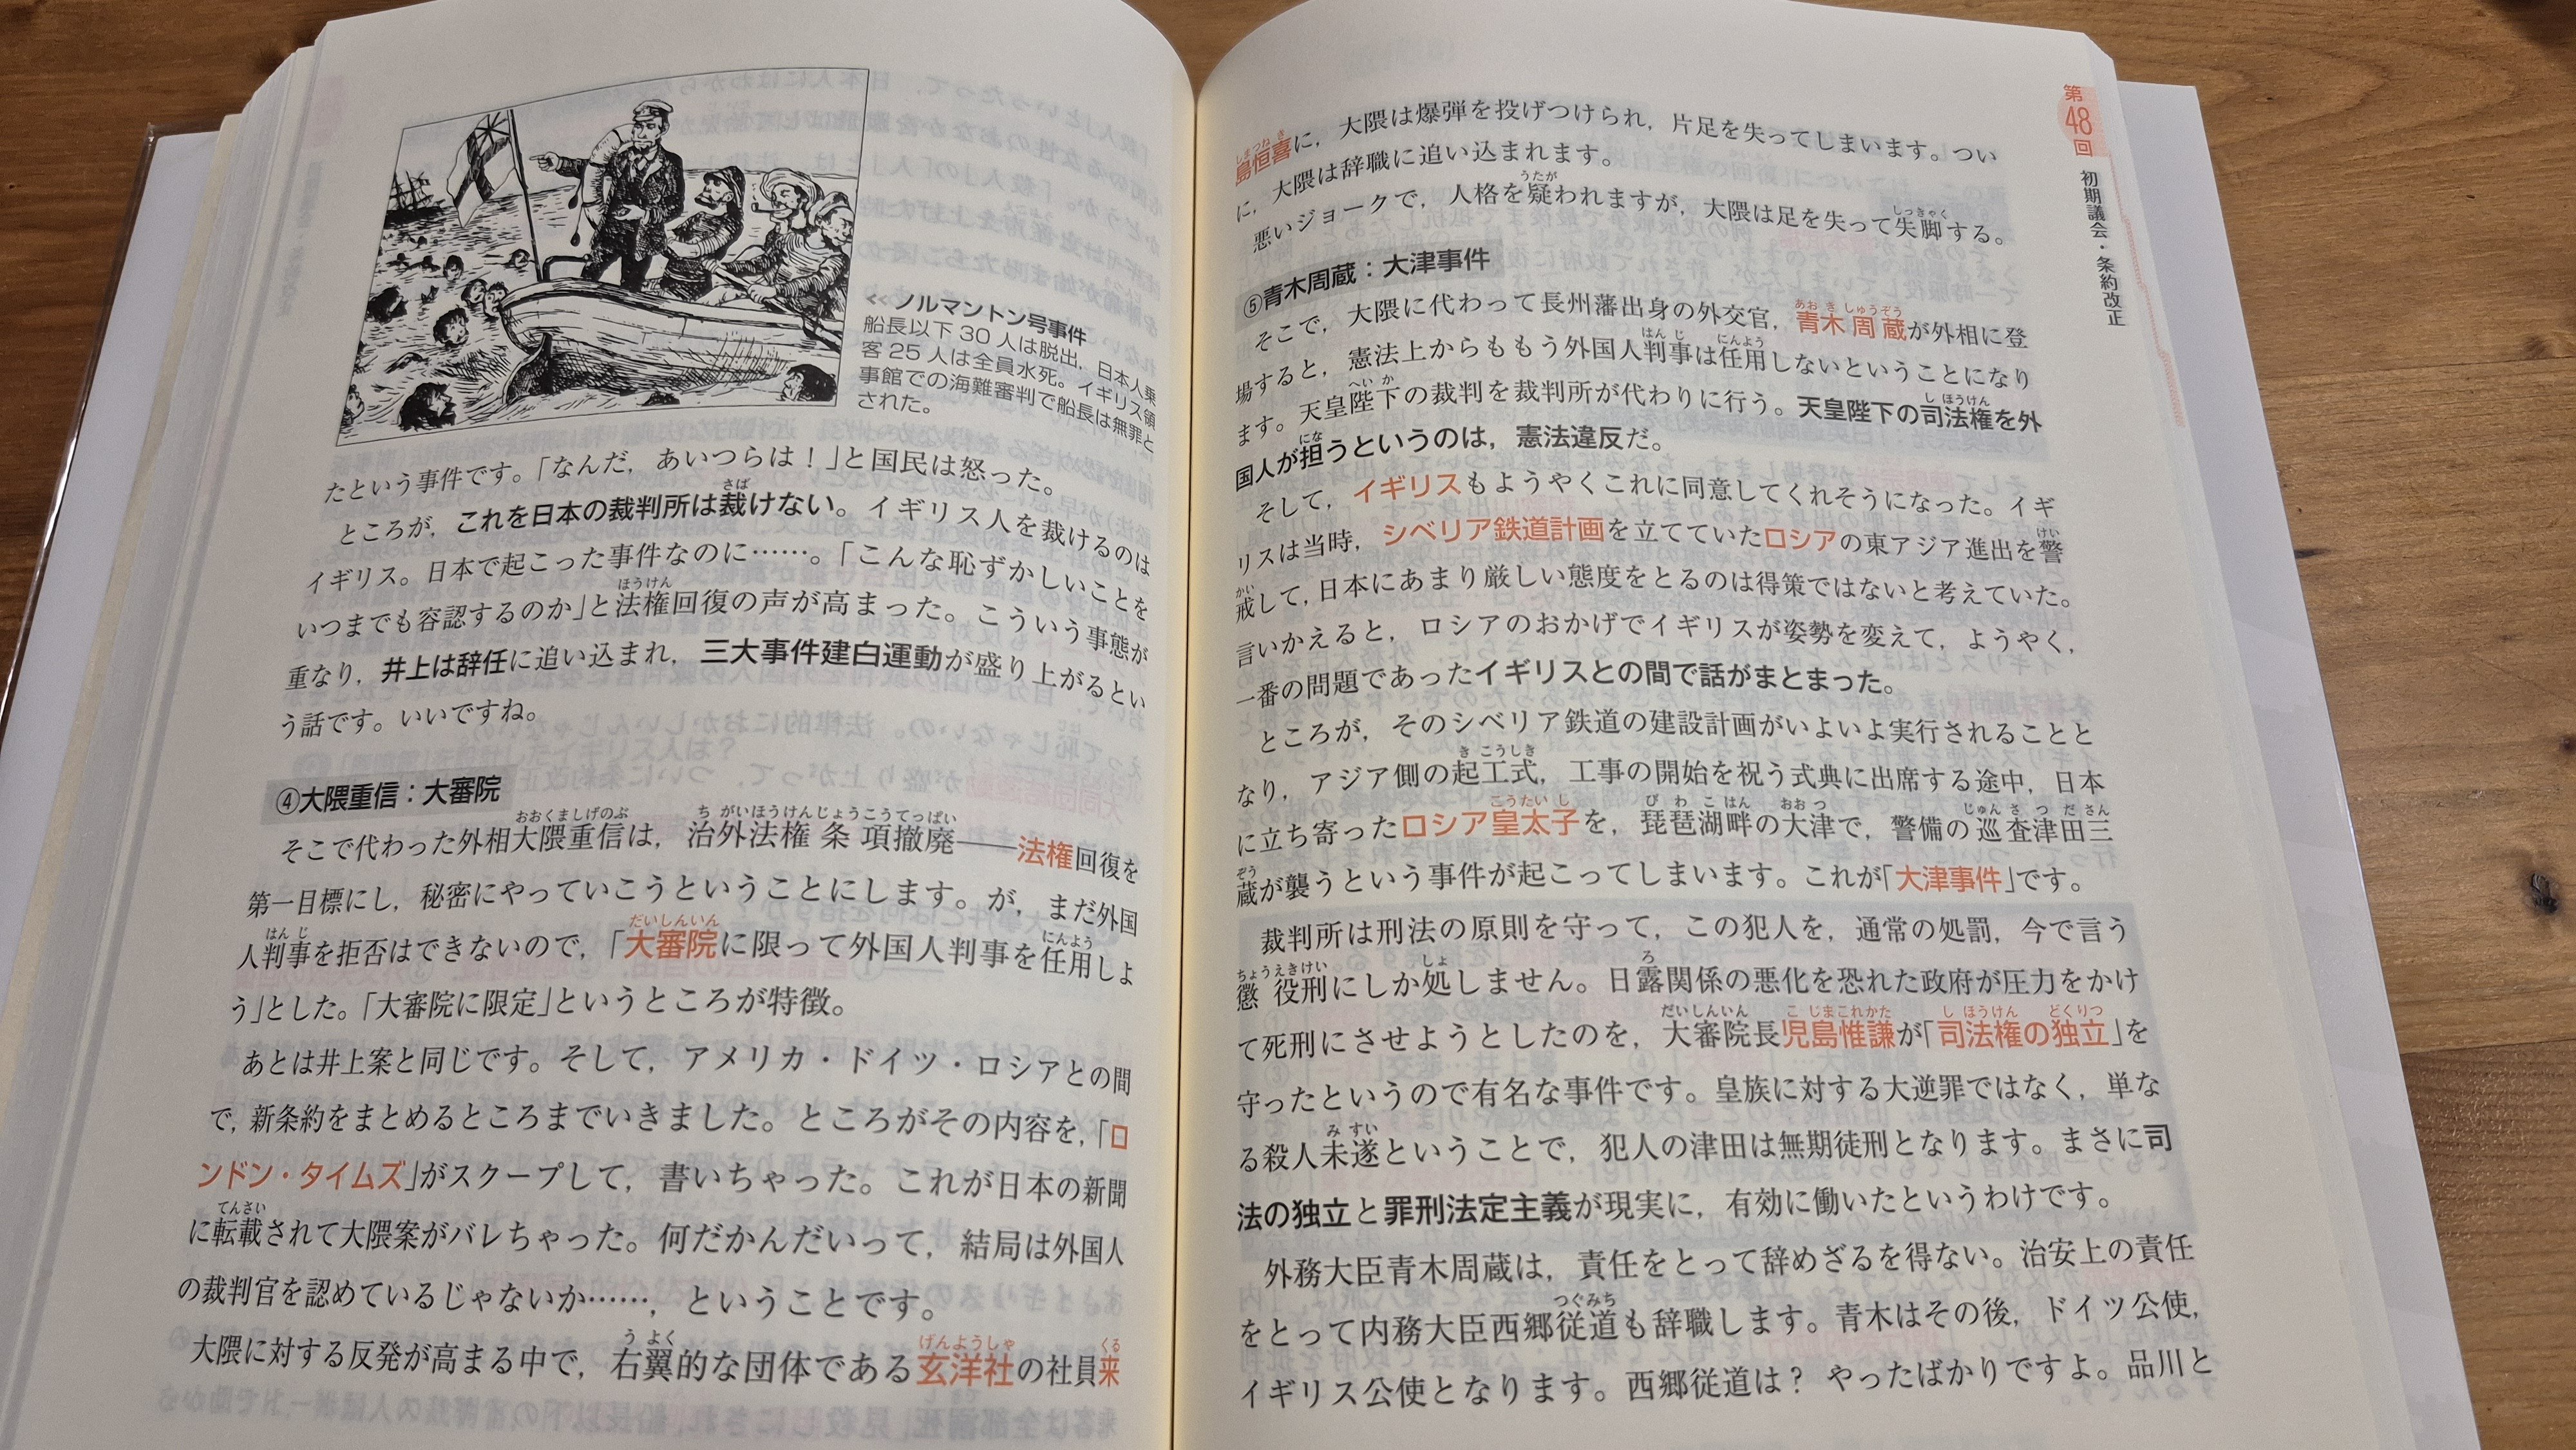 <<ノルマントン号事件
船長以下30人は脱出，日本人乗
客25人は全員水死。イギリス領
事館での海難審判で船長は無罪と
された。
たという事件です。「なんだ，あいつらは！」と国民は怒った。
ところが，これを日本の裁判所は裁けない。イギリス人を裁けるのは
イギリス。日本で起こった事件なのに……。「こんな恥ずかしいことを
いつまでも容認するのか」と法権回復の声が高まった。こういう事態が
重なり，井上は辞任に追い込まれ，三大事件建白運動が盛り上がるとい
う話です。いいですね。
④大隈重信：大審院
そこで代わった外相大隈重信は，治外法権条項撤廃——法権回復を
第一目標にし，秘密にやっていこうということにします。が，まだ外国
人判事を拒否はできないので，「大審院に限って外国人判事を任用しよ
う」とした。「大審院に限定」というところが特徴。
あとは井上案と同じです。そして，アメリカ・ドイツ・ロシアとの間
で，新条約をまとめるところまでいきました。ところがその内容を，「ロ
ンドン・タイムズ」がスクープして，書いちゃった。これが日本の新聞
に転載されて大隈案がバレちゃった。何だかんだいって，結局は外国人
の裁判官を認めているじゃないか……，ということです。
大隈に対する反発が高まる中で，右翼的な団体である玄洋社の社員来
島恒喜に，大隈は爆弾を投げつけられ，片足を失ってしまいます。つい
に，大隈は辞職に追い込まれます。
悪いジョークで，人格を疑われますが，大隈は足を失って失脚する。
⑤青木周蔵：大津事件
そこで，大隈に代わって長州藩出身の外交官，青木周蔵が外相に登
場すると，憲法上からももう外国人判事は任用しないということになり
ます。天皇陛下の裁判を裁判所が代わりに行う。天皇陛下の司法権を外
国人が担うというのは，憲法違反だ。
そして，イギリスもようやくこれに同意してくれそうになった。イギ
リスは当時，シベリア鉄道計画を立てていたロシアの東アジア進出を警
戒して，日本にあまり厳しい態度をとるのは得策ではないと考えていた。
言いかえると，ロシアのおかげでイギリスが姿勢を変えて，ようやく，
一番の問題であったイギリスとの間で話がまとまった。
ところが，そのシベリア鉄道の建設計画がいよいよ実行されることと
なり，アジア側の起工式，工事の開始を祝う式典に出席する途中，日本
に立ち寄ったロシア皇太子を，琵琶湖畔の大津で，警備の巡査津田三
蔵が襲うという事件が起こってしまいます。これが「大津事件」です。
裁判所は刑法の原則を守って，この犯人を，通常の処罰，今で言う
懲役刑にしか処しません。日露関係の悪化を恐れた政府が圧力をかけ
て死刑にさせようとしたのを，大審院長児島惟謙が「司法権の独立」を
守ったというので有名な事件です。皇族に対する大逆罪ではなく，単な
る殺人未遂ということで，犯人の津田は無期徒刑となります。まさに司
法の独立と罪刑法定主義が現実に，有効に働いたというわけです。
外務大臣青木周蔵は，責任をとって辞めざるを得ない。治安上の責任
をとって内務大臣西郷従道も辞職します。青木はその後，ドイツ公使，
イギリス公使となります。西郷従道は？ やったばかりですよ。品川と
第48回 初期議会・条約改正